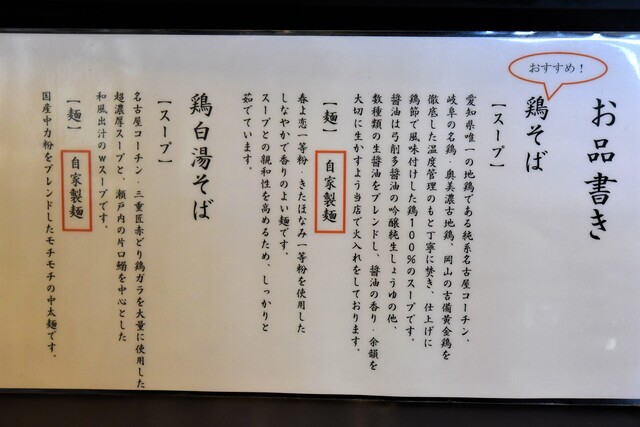 お品書き
おすすめ！
鶏そば
【スープ】
愛知県唯一の地鶏である純系名古屋コーチン、
岐阜の名鶏・奥美濃古地鶏、岡山の吉備黄金鶏を
徹底した温度管理のもと丁寧に焚き、仕上げに
鶏節で風味付けした鶏100％のスープです。
醤油は弓削多醤油の吟醸純生しょうゆの他、
数種類の生醤油をブレンドし、醤油の香り・余韻を
大切に生かすよう当店で火入れをしております。
【麺】 自家製麺
春よ恋一等粉・きたほなみ一等粉を使用した
しなやかで香りのよい麺です。
スープとの親和性を高めるため、しっかりと
茹でています。
鶏白湯そば
【スープ】
名古屋コーチン・三重匠赤どり鶏ガラを大量に使用した
超濃厚スープと、瀬戸内の片口鰯を中心とした
和風出汁のwスープです。
【麺】 自家製麺
国産中力粉をブレンドしたモチモチの中太麺です。